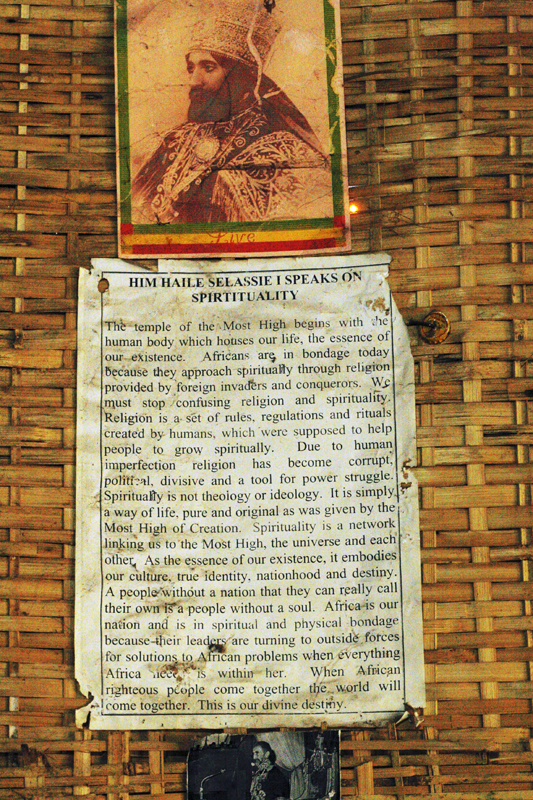 Live
HIM HAILE SELASSIE I SPEAKS ON
SPIRTITUALITY
The temple of the Most High begins with the
human body which houses our life, the essence of
our existence. Africans are in bondage today
because they approach spiritually through religion
provided by foreign invaders and conquerors. We
must stop confusing religion and spirituality.
Religion is a set of rules, regulations and rituals
created by humans, which were supposed to help
people to grow spiritually. Due to human
imperfection religion has become corrupt,
political, divisive and a tool for power struggle.
Spiritually is not theology or ideology. It is simply
a way of life, pure and original as was given by the
Most High of Creation. Spirituality is a network
linking us to the Most High, the universe and each
other. As the essence of our existence, it embodies
our culture, true identity, nationhood and destiny.
A people without a nation that they can really call
their own is a people without a soul. Africa is our
nation and is in spiritual and physical bondage
because their leaders are turning to outside forces
for solutions to African problems when everything
Africa needs is within her. When African
righteous people come together the world will
come together. This is our divine destiny.